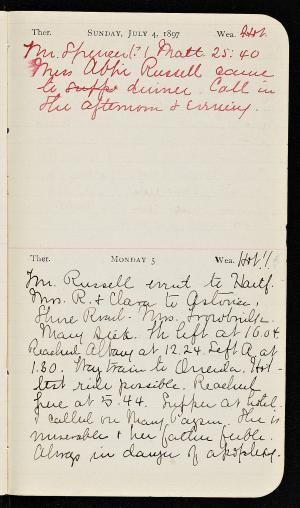 Ther. SUNDAY, JULY 4, 1897 Wea. Hot.
Mr. Spencer (?) Matt. 25:40
Miss Abbie Russell came
to supp dinner. Call in
the afternoon & evening.
Ther. MONDAY 5 Wea. Hot!!
Mr. Russell went to Hartf.
Mrs. R. & Clara to
Shore Road. Mrs. Trowbridge.
Mary sick. left at 10.04.
Reached Albany at 12.24. Left A. at
1.30. Way train to Oneida. Hot-
test ride possible. Reached
here at 5.44. Supper at hotel.
I called on Mary. She is
miserable & her father feeble.
Always in danger of apoplexy.